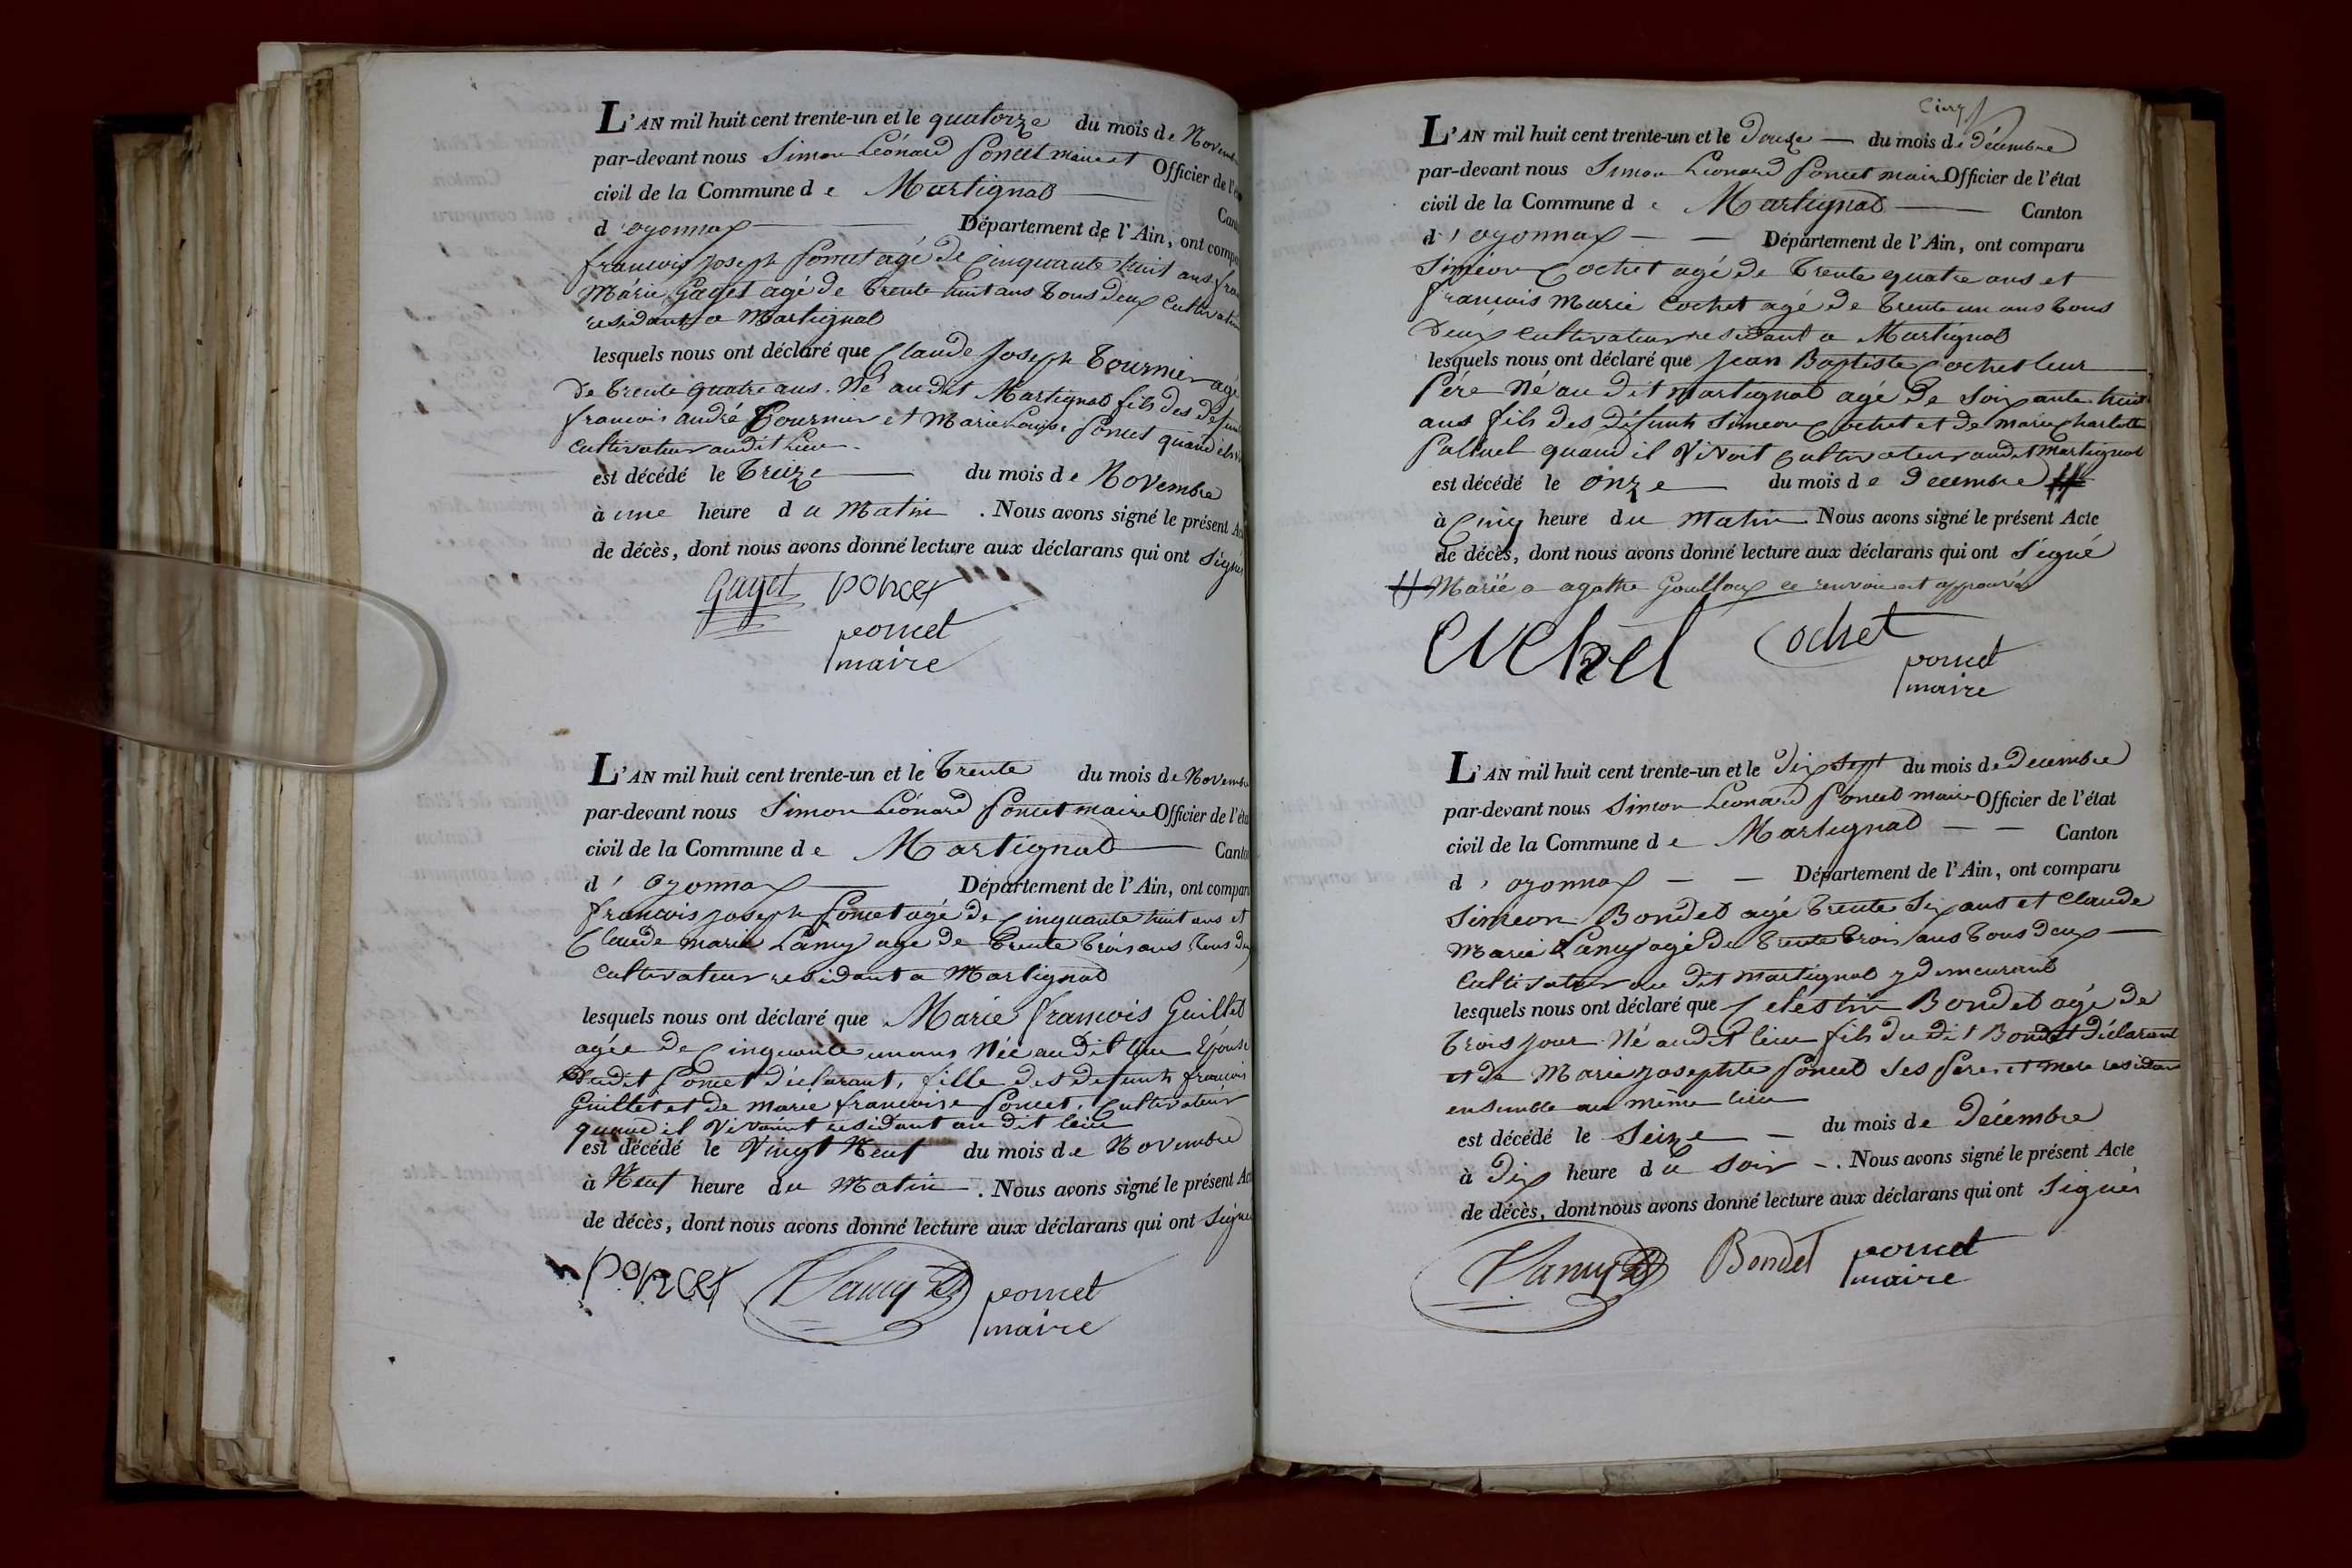 L'AN mil huit cent trente-un et le quatorze du mois de Novem
par-devant nous Simon Léonard Poncet maire et Officier de l'é
civil de la Commune de Martignat
d'oyonnax Département de l'Ain, ont comp
francois joseph Poncet agé de Cinquante huit ans fra
Marie Gaget agé de trente huit ans tous deux Cultivat
residant a Martignat
lesquels nous ont déclaré que Claude Joseph Tournier agé
de trente quatre ans. Né au dit Martignat fils des défun
francois andré Tournier et Marie Louise Poncet quand ils
Cultivateur au dit Lieu
est décédé le treize du mois de Novembre
à une heure du Matin. Nous avons signé le présent Ac
de décès, dont nous avons donné lecture aux déclarans qui ont Signé
Gaget poncet
poncet
maire
L'AN mil huit cent trente-un et le trente du mois de Novembre
par-devant nous Simon Léonard Poncet maire Officier de l'éta
civil de la Commune de Martignat Canton
d'oyonnax Département de l'Ain, ont compar
francois joseph Poncet agé de Cinquante huit ans et
Claude marie Lamy age de trente trois ans tous de
Cultivateur residant a Martignat
lesquels nous ont déclaré que Marie francois Guillet
agée de Cinquante un ans Née au dit lieu Epouse
dudit Poncet déclarant, fille des defunts francois
Guillet et de marie francoise Poncet, Cultivateur
quand il vivaint residant au dit lieu
est décédé le Vingt Neuf du mois de Novembre
à Neuf heure du Matin. Nous avons signé le présent Ac
de décès, dont nous avons donné lecture aux déclarans qui ont Signé
poncet Lamy poncet
maire
Cinq
L'AN mil huit cent trente-un et le douze du mois de décembre
par-devant nous Simon Leonard Poncet maire Officier de l'état
civil de la Commune de Martignat Canton
d'oyonnax Département de l'Ain, ont comparu
Siméon Cochet agé de trente quatre ans et
francois Marie Cochet agé de trente un ans tous
deux cultivateur residant a Martignat
lesquels nous ont déclaré que jean Baptiste Cochet leur
Pére Né au dit Martignat agé de soixante huit
ans fils des défunts Simeon Cochet et de marie Charlotte
quand il Vivoit Cultivateur au dit Martignat
est décédé le onze du mois de decembre //
à Cinq heure du matin Nous avons signé le présent Acte
de décès, dont nous avons donné lecture aux déclarans qui ont Signé
// Marié a agathe Goulloux ce renvoi est approuvé
Cuchet Cochet
poncet
maire
L'AN mil huit cent trente-un et le dix sept du mois de Decembre
par-devant nous Simon Leonard Poncet maire Officier de l'état
civil de la Commune de Martignat Canton
d'oyonnax Département de l'Ain, ont comparu
Simeon Bondet agé trente six ans et Claude
Marie Lamy agé de trente trois ans tous deux
Cultivateur au dit Martignat y demeurant
lesquels nous ont déclaré que Celestin Bondet agé de
trois jour Né au dit lieu fils du dit Bondet déclarant
et de Marie josephte Poncet ses Pere et mere residant
ensemble au même lieu
est décédé le Seize du mois de Décembre
à Dix heure du Soir. Nous avons signé le présent Acte
de décès, dont nous avons donné lecture aux déclarans qui ont Signés
Lamy Bondet poncet
maire